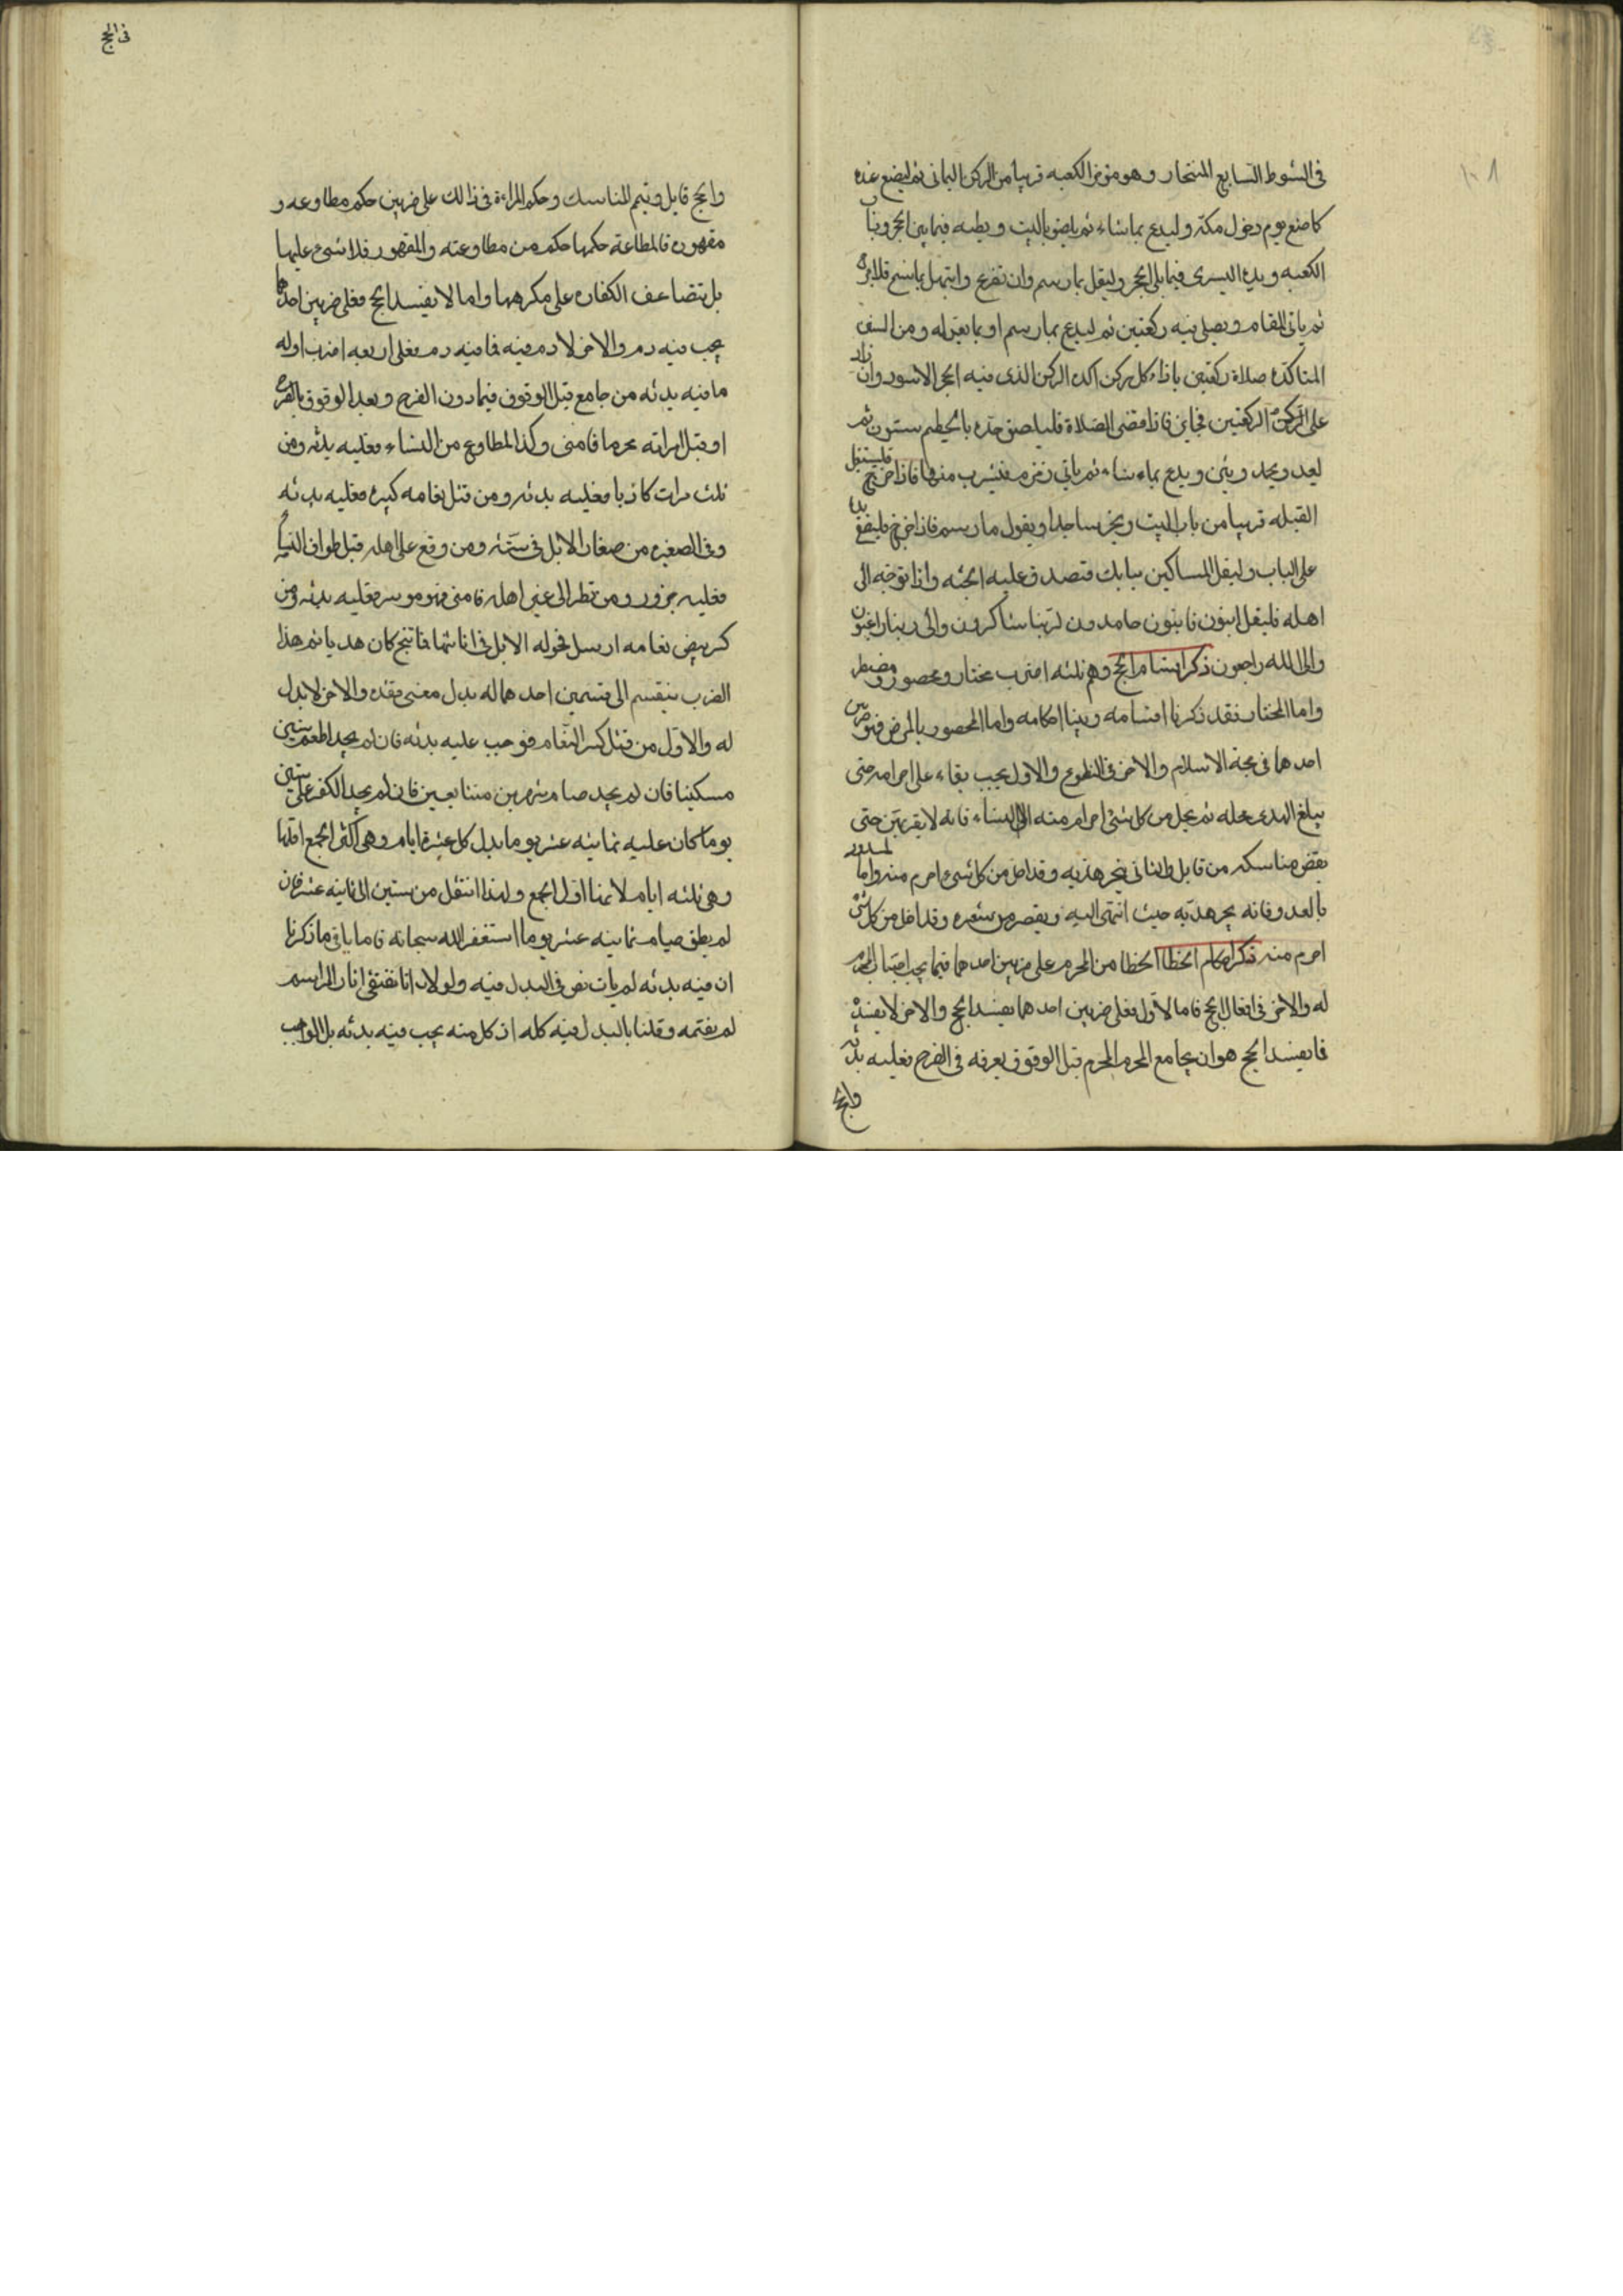 في الشوط السابع المنتجار وهو مؤخر الكعبه قريبا من الركن اليماني ثم ليضع خده
كما صنع يوم دخول مكة وليدع بما شاء ثم يلصق بالبيت وبطنه فيما بين الحجر وباب
الكعبه ويده اليسرى فيما يلي الحجر وليقل ما رسم وان تضرع وابتهل بما سنح فلا
ثم ياتي المقام ويصلي فيه ركعتين ثم ليدع بما رسم او بما يعن له ومن السنن
المتاكده صلاة ركعتين بازاء كل ركن اكده الركن الذي فيه الحجر الاسود وان زاد
على الركعتين فجايز فاذا قضى الصلاة فليلصق خده بالحطيم ستون ثم
ليعد ويحمد ويثني ويدع بما شاء ثم ياتي زمزم فيشرب منها فاذا خرج فليستقبل
القبله قريبا من باب البيت ويخر ساجدا ويقول ما رسم فاذا خرج فليضع يده
على الباب وليقل المساكين ببابك فتصدق عليه الجنه واذا توجه الى
اهله فليقل ايبون تايبون حامدون لربنا شاكرون والى ربنا راغبون
والى الله راجعون ذكر اقسام الحج وهم ثلثه اضرب مختار ومحصور ومضطر
واما المختار فقد ذكرنا اقسامه وبينا احكامه واما المحصور بالمرض فهو ضربين
احدهما في حجة الاسلام والاخر في التطوع والاول يجب بقاء على احرامه حتى
يبلغ الهدى محله ثم يحل من كل شئ احرام منه الا النساء فانه لا يقربهن حتى
يقض مناسكه من قابل والثاني ينحر هديه وقد احل من كل شئ احرم منه واما المصدود
بالعدو فانه ينحر هديه حيث انتهى اليه ويقصر من شعره وقد احل من كل شئ
احرم منه ذكر احكام الخطا الخطا من المحرم على ضربين احدهما فيما يجب اجتناب المحرم
له والاخر في افعال الحج فاما الاول فعلى ضربين احدهما يفسد الحج والاخر لا يفسده
فما يفسد الحج هو ان يجامع المحرم المحرم قبل الوقوف بعرفه في الفرج فعليه بدنه
والحج
في الحج
والحج قابل ويتم المناسك وحكم المراة في ذالك على ضربين حكم مطاوعه و
مقهوره فالمطاعة حكمها حكم من مطاوعته والمقهور فلا شئ عليها
بل يتضاعف الكفاره على مكرهها واما لا يفسد الحج فعلى ضربين احدهما
يجب فيه دم والاخر لا دم فيه فما فيه دم فعلى اربعه اضرب اوله
ما فيه بدنه من جامع قبل الوقوف فيما دون الفرج وبعد الوقوف بالفرج
او قبل امراته محرما فامنى وكذا المطاوع من النساء فعليه بدنه ومن
ثلث مرات كاذبا فعليه بدنه ومن قتل نعامه كبيره فعليه بدنه
وفي الصغيره من صغار الابل في سنه ومن وقع على اهله قبل طواف النسا
فعليه جزور ومن نظر الى غير اهله فامنى فهو موسر فعليه بدنه ومن
كسر بيض نعامه ارسل فحوله الابل في اناثها فما نتج كان هديا ثم هذا
الضرب ينقسم الى قسمين احدهما له بدل معنى فقده والاخر لا بدل
له والاول من قتل كبير النعام فوجب عليه بدنه فان لم يجد اطعم ستين
مسكينا فان لم يجد صام شهرين متتابعين فان لم يجد الكفر على ستين
يوما كان عليه ثمانيه عشر يوما بدل كل عشرة ايام وهي اكثر الجمع اقلها
وهي ثلثه ايام لانها اقل الجمع ولهذا انتقل من ستين الى ثمانيه عشر فان
لم يطق صيام ثمانيه عشر يوما استغفر الله سبحانه فاما باقي ما ذكرنا
ان فيه بدنه لم يات نص في البدل فيه ولولا ان انا نقتفي اثار المراسم
لم يفتمه وقلنا بالبدل فيه كله اذ كل منه يجب فيه بدنه بل الواجب